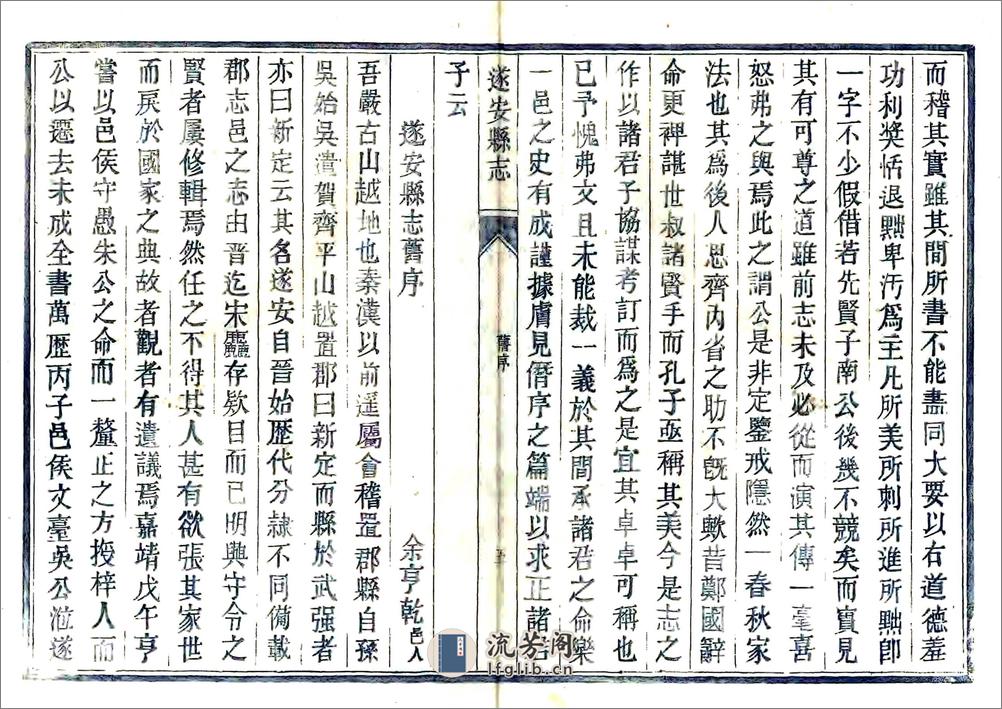 而稽其實雖其間所書不能盡同大要以右道德羞
功利奨恬退黜卑汚爲主凡所美所刺所進所黜卽
一字不少假借若先賢子南公後幾不競矣而實見
其有可尊之道雖前志未及必從而演其傳一毫喜
怒弗之與焉此之謂公是非定鑒戒隱然一春秋家
法也其爲後人思齊内省之助不旣大歟昔鄭國辭
命更裨諶世叔諸賢手而孔子亟稱其美今是志之
作以諸君子協謀考訂而爲之是宜其卓卓可稱也
已予愧弗文且未能裁一義於其間承諸君之命樂
一邑之史有成謹據膚見僭序之篇端以求正諸君
子云
遂安縣志
舊序
遂安縣志舊序
余亨乾邑人
吾嚴古山越地也秦漢以前遥屬會稽置郡縣自孫
吳始吳潰賀齊平山越置郡曰新定而縣於武强者
亦曰新定云其名遂安自晉始歷代分隷不同備載
郡志邑之志由晋迄宋麤存欵目而已明興守令之
賢者屢修輯焉然任之不得其人甚有欲張其家世
而戾於國家之典故者觀者有遺議焉嘉靖戊午亨
嘗以邑侯守愚朱公之命而一釐正之方授梓人而
公以遷去未成全書萬歷丙子邑侯文臺吳公涖遂
流芳阁
lfglib.cn